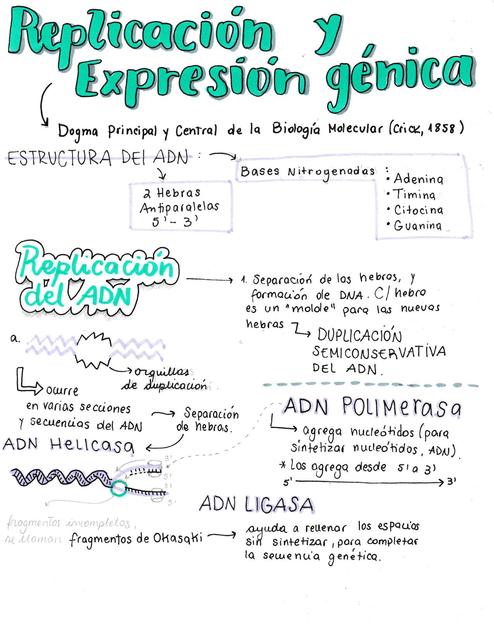 Replicación y
Expresión génica
Dogma Principal y Central de la Biología Molecular (Crick, 1858)
ESTRUCTURA DEL ADN :
2 Hebras
Antiparalelas
5' - 3'
Bases Nitrogenadas :
• Adenina
• Timina
• Citocina
• Guanina
Replicación
del ADN
1. Separación de las hebras, y
formación de DNA. C/ hebra
es un "molde" para las nuevas
hebras
DUPLICACIÓN
SEMICONSERVATIVA
DEL ADN.
a.
orquillas
de duplicación
ocurre
en varias secciones
y secuencias del ADN
Separación
de hebras.
ADN HELICASA
3'
5'
3'
5'
fragmentos incompletos,
se llaman fragmentos de Okasaki
ADN POLIMERASA
agrega nucleótidos (para
sintetizar nucleótidos, ADN).
* Los agrega desde 5' a 3'
5' 3'
ADN LIGASA
ayuda a rellenar los espacios
sin sintetizar, para completar
la secuencia genética.